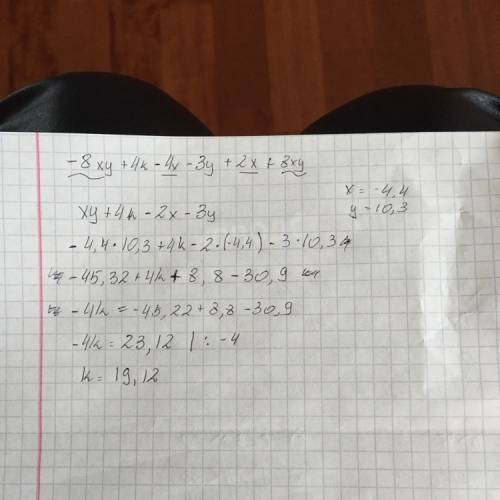 -8xy + 4k - 4x - 3y + 2x + 8xy
xy + 4k - 2x - 3y
x = -4,4
y = 10,3
-4,4 · 10,3 + 4k - 2 · (-4,4) - 3 · 10,3
-45,32 + 4k + 8,8 - 30,9
-4k = -45,22 + 8,8 - 30,9
-4k = 23,12 | : -4
k = 19,12